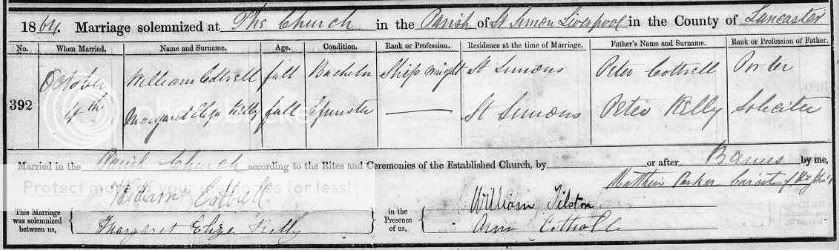 1864. Marriage solemnized at The Church in the Parish of St Simon Liverpool in the County of Lancaster
No. When Married. Name and Surname. Age. Condition. Rank or Profession. Residence at the time of Marriage. Father's Name and Surname. Rank or Profession of Father.
392 October 4th William Cottrell full Bachelor Shipwright St Simons Peter Cottrell Porter
Margaret Eliza Kelly full Spinster — St Simons Peter Kelly Soliciter
Married in the Parish Church according to the Rites and Ceremonies of the Established Church, by or after Banns by me,
Matthew Parker Curate of
This Marriage was solemnized between us,
William Cottrell
Margaret Eliza Kelly
in the Presence of us,
William Tilston
Ann Cottrell